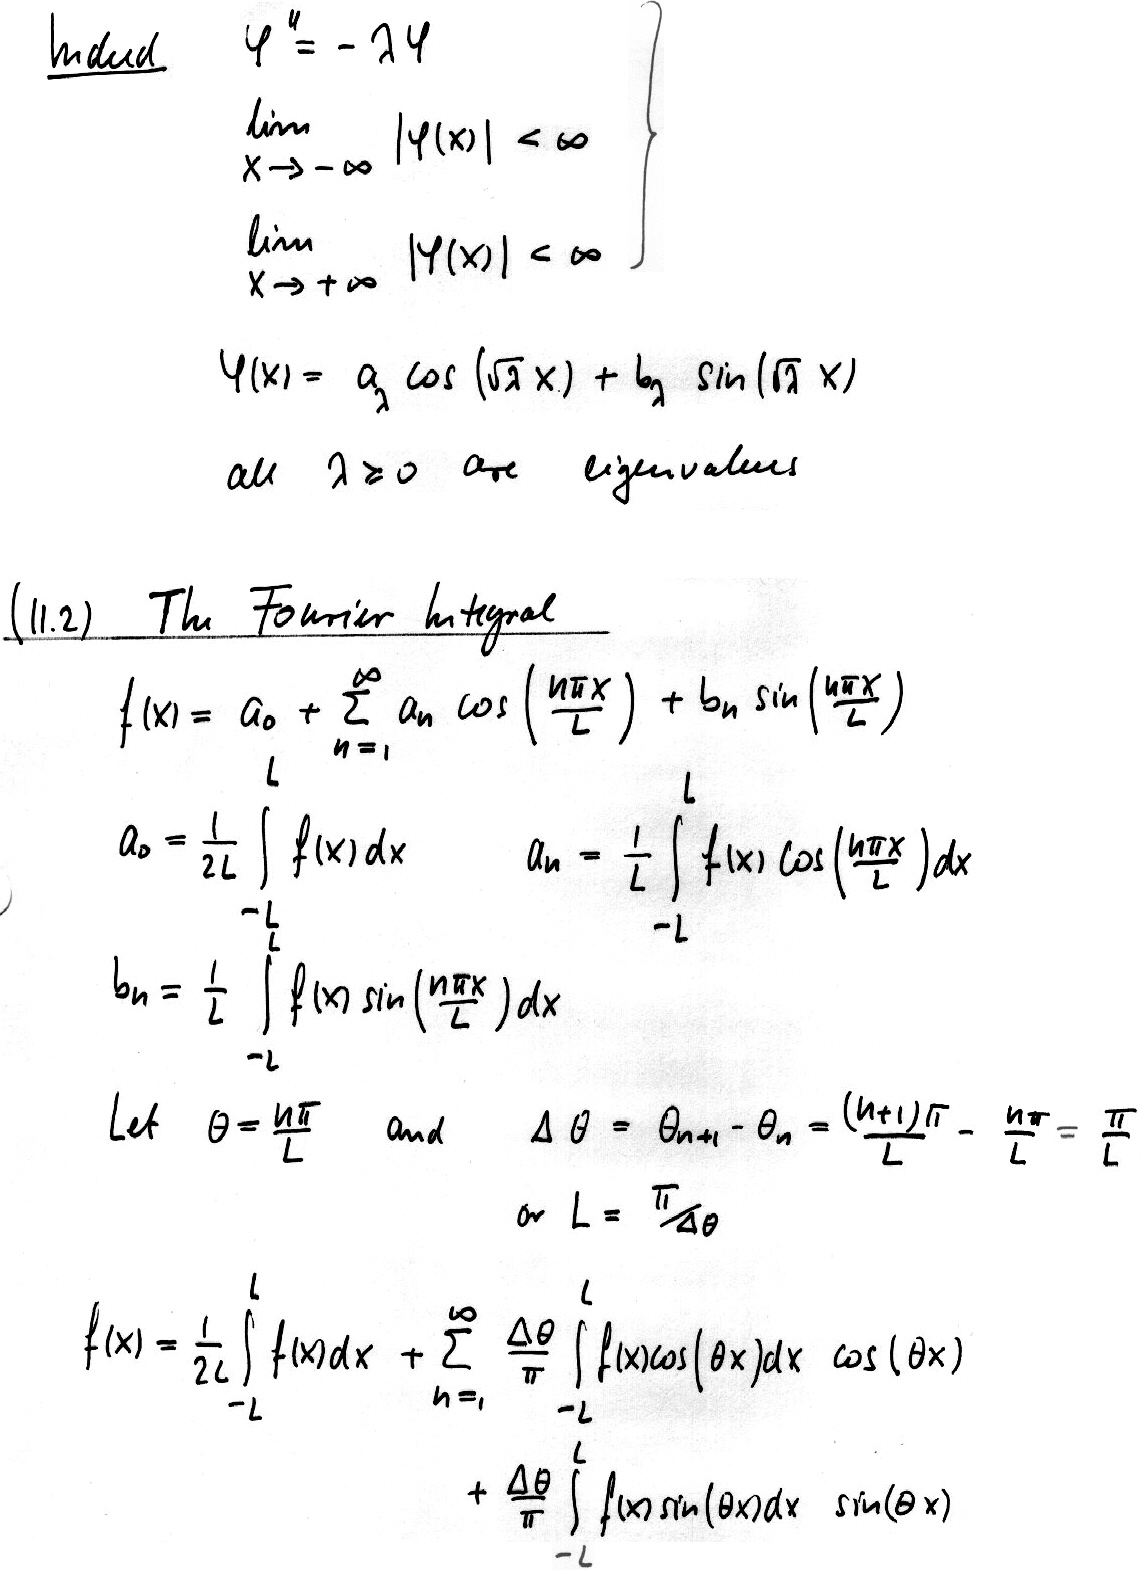 Indeed φ'' = - λφ
lim |φ(x)| < ∞
x → - ∞
lim |φ(x)| < ∞
x → + ∞
φ(x) = a_λ cos (√λ x) + b_λ sin (√λ x)
all λ ≥ 0 are eigenvalues
(11.2) The Fourier Integral
f(x) = a₀ + ∑_{n=1}^{∞} aₙ cos (nπx/L) + bₙ sin (nπx/L)
a₀ = 1/2L ∫_{-L}^{L} f(x) dx aₙ = 1/L ∫_{-L}^{L} f(x) cos (nπx/L) dx
bₙ = 1/L ∫_{-L}^{L} f(x) sin (nπx/L) dx
Let θ = nπ/L and Δθ = θₙ₊₁ - θₙ = (n+1)π/L - nπ/L = π/L
or L = π/Δθ
f(x) = 1/2L ∫_{-L}^{L} f(x) dx + ∑_{n=1}^{∞} Δθ/π ∫_{-L}^{L} f(x) cos (θx) dx cos (θx)
+ Δθ/π ∫_{-L}^{L} f(x) sin (θx) dx sin (θx)